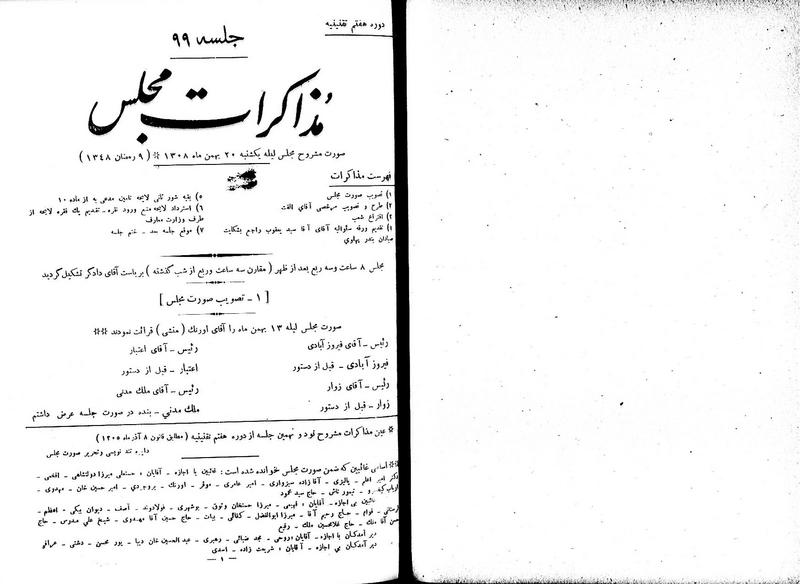 دوره هفتم تقنینیه
جلسه ۹۹
مذاکرات مجلس
صورت مشروح مجلس لیله یکشنبه ۲۰ بهمن ماه ۱۳۰۸ * ( ۹ رمضان ۱۳۴۸ )
فهرست مذاکرات
۱) تصویب صورت مجلس
۲) طرح و تصویب مرخصی آقای الفت
۳) اقتراع شعب
۴) تقدیم ورقه سئوالیه آقای آقا سید یعقوب راجع بشکایت
صیادان بندر پهلوی
۵) بقیه شور ثانی لایحه تامین مدعی به از ماده ۱۰
۶) استرداد لایحه منع ورود نقره - تقدیم یك فقره لایحه از
طرف وزارت معارف
۷) موقع جلسه بعد - ختم جلسه
مجلس ۸ ساعت وسه ربع بعد از ظهر ( مقارن سه ساعت وربع از شب گذشته ) بریاست آقای دادگر تشکیل گردید
[ ۱ - تصویب صورت مجلس ]
صورت مجلس لیله ۱۳ بهمن ماه را آقای اورنك ( منشی ) قرائت نمودند **
رئیس - آقای فیروز آبادی
فیروز آبادی - قبل از دستور
رئیس - آقای زوار
زوار - قبل از دستور
رئیس - آقای اعتبار
اعتبار - قبل از دستور
رئیس - آقای ملك مدنی
ملك مدنی - بنده در صورت جلسه عرض داشتم
* عین مذاکرات مشروح نود و نهمین جلسه از دوره هفتم تقنینیه (مطابق قانون ۸ آذر ماه ۱۳۰۵)
دایره تند نویسی وتحریر صورت مجلس
** اسامی غائبین که ضمن صورت مجلس خوانده شده است : غائبین با اجازه - آقایان : میرزا دولتشاهی - افخمی -
دکتر امیر اعلم - پالیزی - آقا زاده سبزواری - امیر عامری - موقر - اورنك - بروجردی - امیر حسین خان - مهدوی -
ارباب کیخسرو - تیمور تاش - حاج سید محمود
غائبین بی اجازه - آقایان : میرزا حسنخان وثوق - بوشهری - فولادوند - آصف - دیوان بیگی - اعظم -
لرستانی - قوام - حاج رحیم آقا - میرزا ابوالفضل - کفائی - بیات - حاج حسین آقا مهدوی - شیخ علی مدرس - حاج
حسن آقا ملك - حاج غلامحسین ملك - رفیع
دیر آمدگان با اجازه - آقایان : روحی - مجد ضیائی - رهبری - عبد الحسین خان دیبا - پور محسن - دشتی - عراقی
دیر آمدگان بی اجازه - آقایان : شریعت زاده - اسدی
- ۱ -